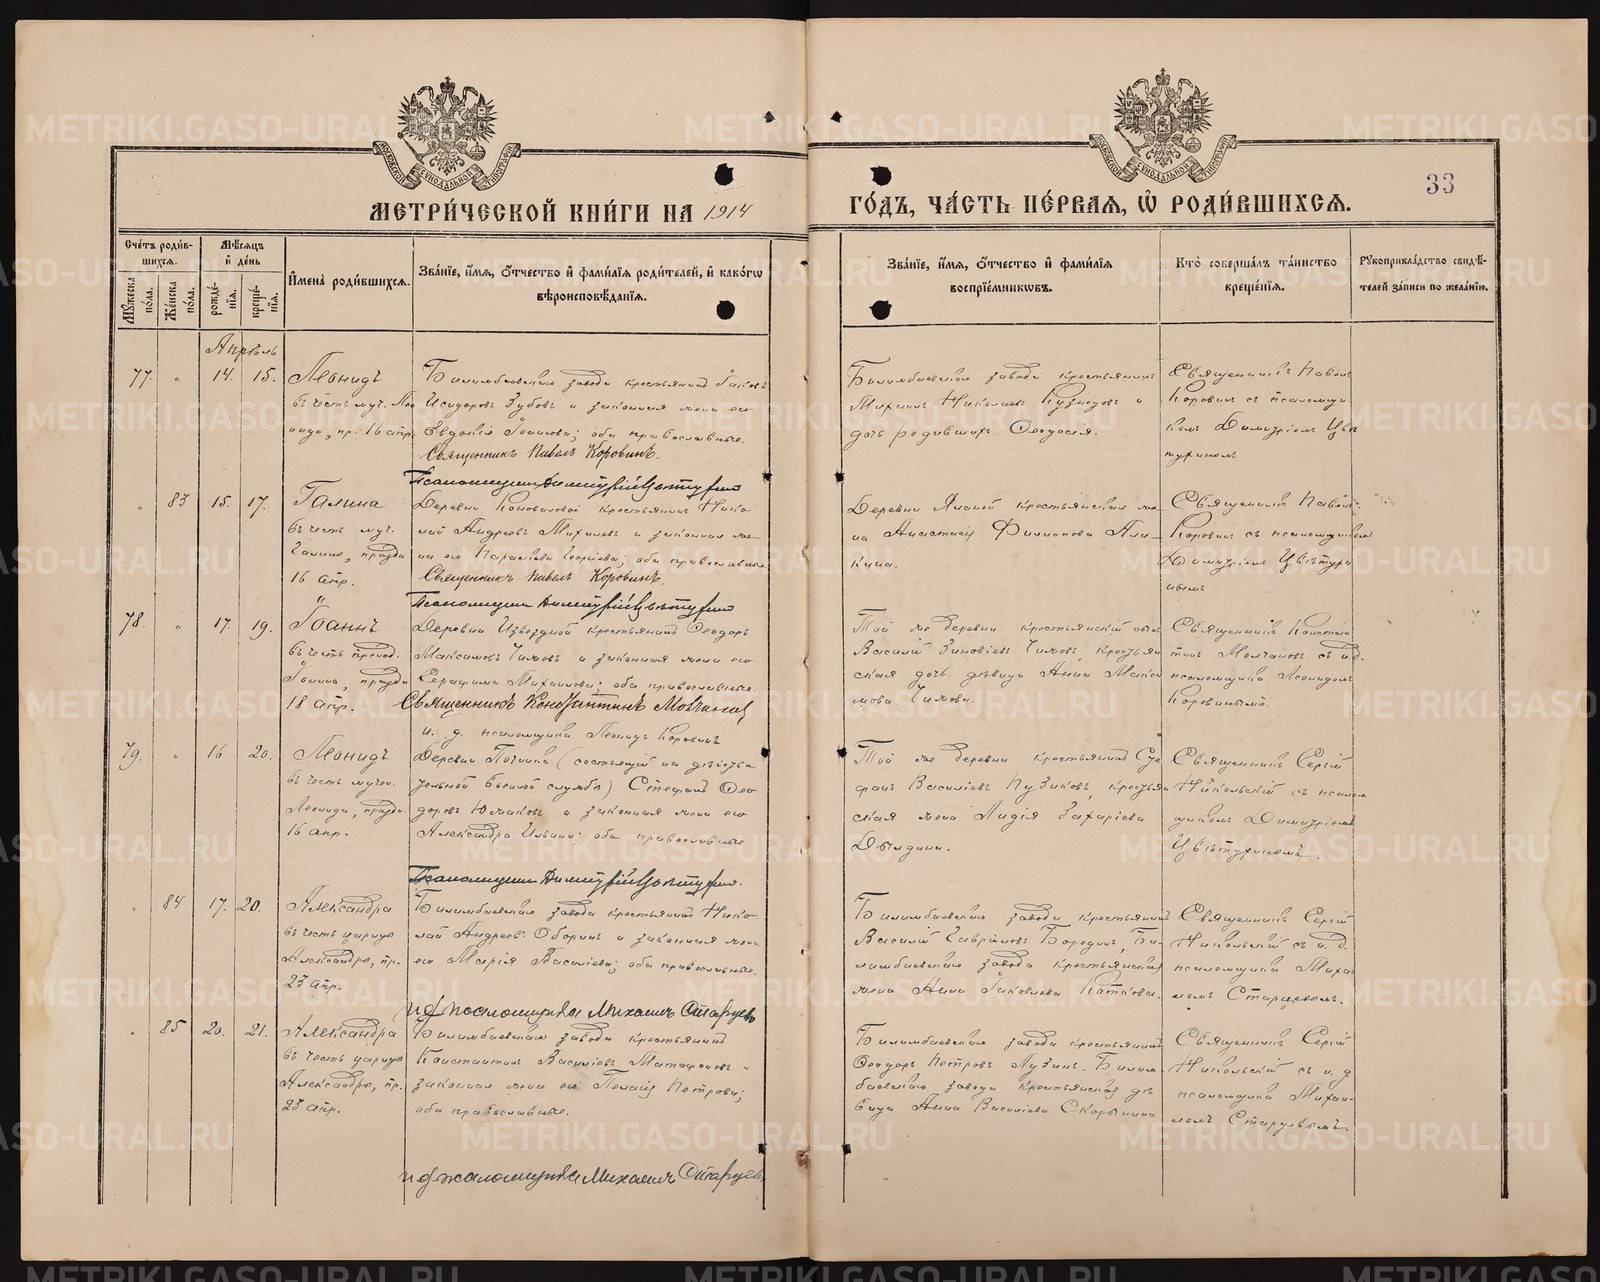 METRIKI.GASO-URAL.RU
МОСКОВСКОЙ СѴНОДАЛЬНОЙ ТИПОГРАФІИ
МЕТРИ́ЧЕСКОЙ КНИ́ГИ НА 1914
ГО́ДЪ, ЧА́СТЬ ПЕ́РВАЯ, Ѡ҆ РОДИ́ВШИХСЯ.
33
Сче́тъ роди́вшихся.
Мѣ́сяцъ и҆ де́нь
Мꙋ́жеска по́ла.
Же́нска по́ла.
рожде́нїя.
креще́нїя.
И҆мена̀ роди́вшихся.
Зва́нїе, и҆́мя, ѻ҆́тчество и҆ фами́лїя роди́телей, и҆ како́гѡ
вѣроисповѣ́данїя.
Зва́нїе, и҆́мя, ѻ҆́тчество и҆ фами́лїя
воспрїе́мникѡвъ.
Кто̀ соверша́лъ та́инство
креще́нїя.
Рꙋкоприкла́дство свидѣ́-
телей за́писи по жела́нїю.
Апрѣль
77. " 14. 15.
Леонидъ
въ честь муч. Лео
нида, пр. 16 апр.
Билимбаевскаго завода крестьянинъ Іаковъ
Исидоровъ Зубовъ и законная жена его
Евдокія Іоаннова; оба православные.
Священникъ Павелъ Коровинъ.
Псаломщикъ Димитрій Цвѣтухинъ
Билимбаевскаго завода крестьянинъ
Михаилъ Николаевъ Кузнецовъ и
дочь родившихъ Ѳеодосія.
Священникъ Павелъ
Коровинъ съ псаломщи
комъ Димитріемъ Цвѣ
тухинымъ
" 83 15. 17.
Галина
въ честь муч.
Галины, праздн.
16 апр.
Деревни Коноваловой крестьянинъ Нико
лай Андреевъ Михалевъ и законная же
на его Параскева Георгіева; оба православные
Священникъ Павелъ Коровинъ.
Псаломщикъ Димитрій Цвѣтухинъ
Деревни крестьянская же
на Анастасія Филиппова
кина.
Священникъ Павелъ
Коровинъ съ псаломщикомъ
Димитріемъ Цвѣтухи
нымъ
78. " 17. 19.
Іоаннъ
въ честь препод.
Іоанна, праздн.
18 апр.
Деревни Извездной крестьянинъ Ѳеодоръ
Максимовъ Чижовъ и законная жена его
Серафима Михаилова; оба православные.
Священникъ Константинъ Молчановъ
и. д. псаломщика Леонидъ Коровинъ
Той же деревни крестьянскій сынъ
Василій Зиновіевъ Чижовъ, крестьян
ская дочь дѣвица Анна Макси
мова Чижова.
Священникъ Констан
тинъ Молчановъ съ и.д.
псаломщика Леонидомъ
Коровинымъ.
79. " 16 20.
Леонидъ
въ честь мучен.
Леонида, праздн.
16 апр.
Деревни Починка (состоящій на дѣйстви
тельной военной службѣ) Стефанъ Ѳео
доровъ Южаковъ и законная жена его
Александра Ильина; оба православные
Псаломщикъ Димитрій Цвѣтухинъ.
Той же деревни крестьянинъ Сте
фанъ Василіевъ Пузиковъ, крестьян
ская жена Лидія Захаріева
Священникъ Сергій
Никольскій съ псалом
щикомъ Димитріемъ
Цвѣтухинымъ.
" 84 17. 20.
Александра
въ честь царицы
Александры, пр.
23 апр.
Билимбаевскаго завода крестьянинъ Нико
лай Андреевъ Оборинъ и законная жена
его Марія Василіева; оба православные.
и д псаломщика Михаилъ Старцевъ
Билимбаевскаго завода крестьянинъ
Василій Гавріиловъ Бородинъ, Би
лимбаевскаго завода крестьянская
жена Анна Іаковлева Коткова.
Священникъ Сергій
Никольскій съ и. д.
псаломщика Михаи
ломъ Старцевымъ.
" 85 20. 21.
Александра
въ честь царицы
Александры, пр.
23 апр.
Билимбаевскаго завода крестьянинъ
Константинъ Василіевъ Матафоновъ и
законная жена его Пелагія Петрова;
оба православные.
и д псаломщика Михаилъ Старцевъ
Билимбаевскаго завода крестьянинъ
Ѳеодоръ Петровъ Лузинъ. Билим
баевскаго завода крестьянская дѣ
вица Анна Василіева Скорынина
Священникъ Сергій
Никольскій съ и. д
псаломщика Михаи-
ломъ Старцевымъ.